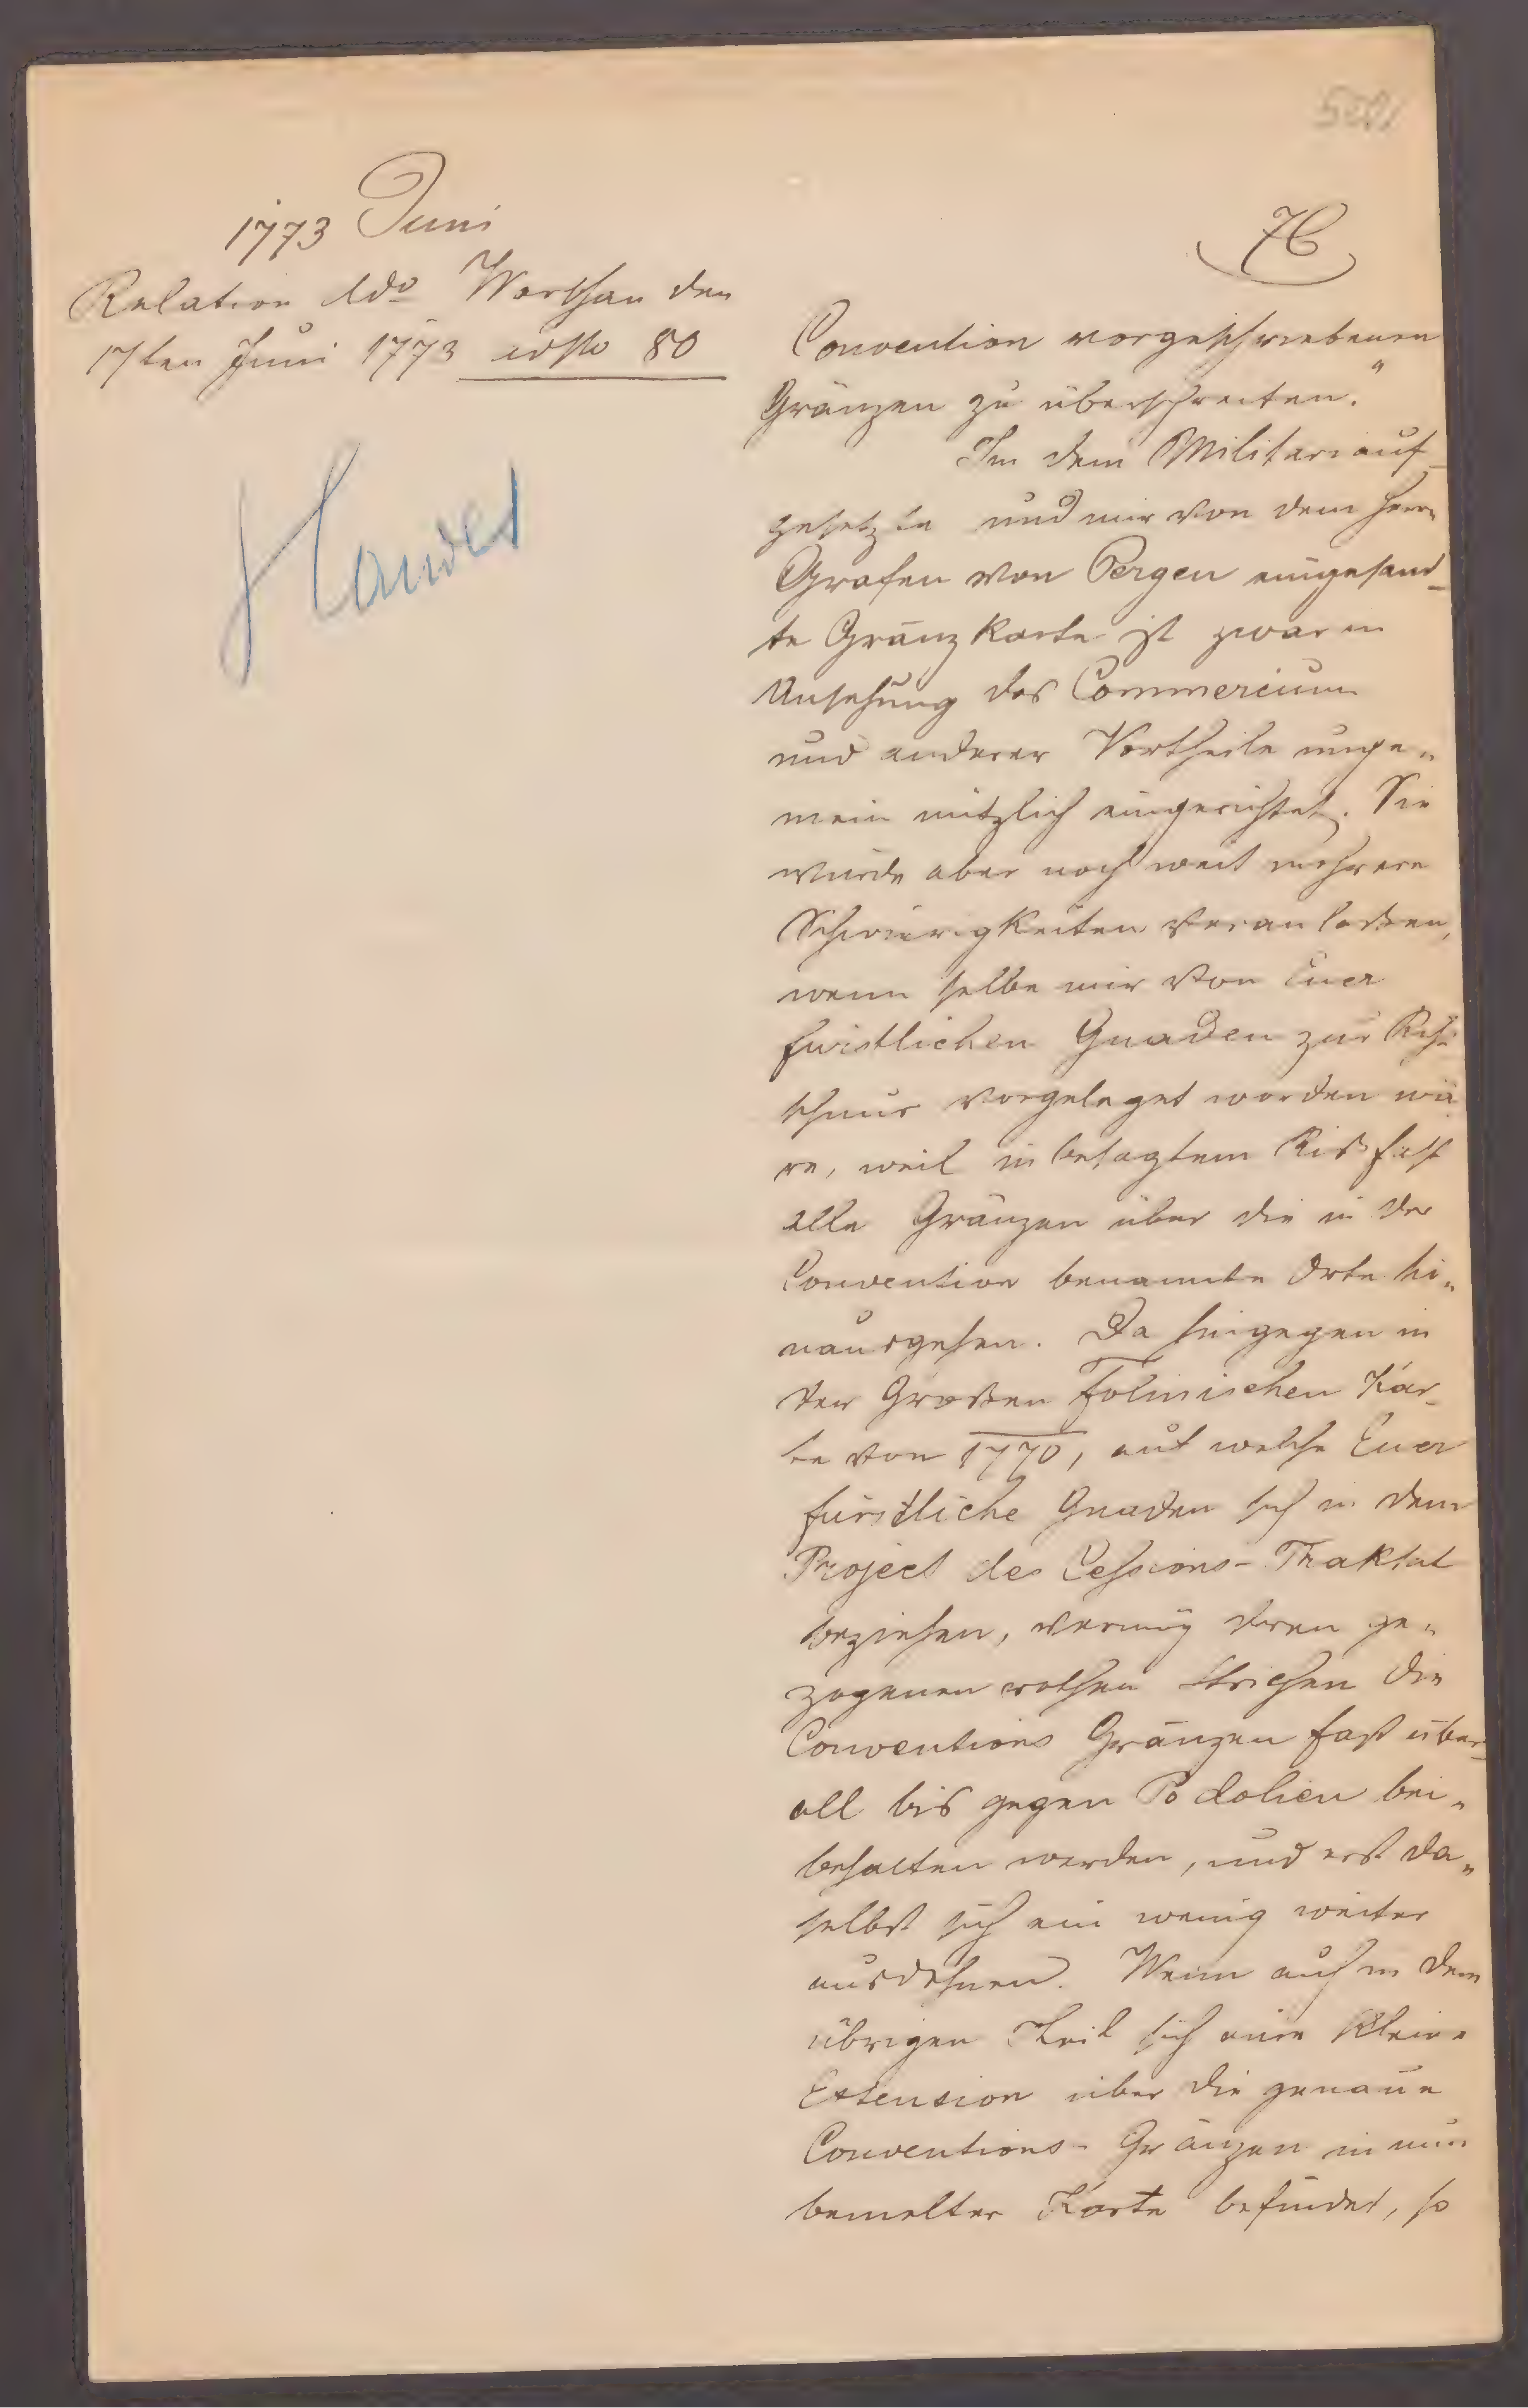 1773 Juni
Relation ddo Warschau den
17ten Juni 1773 80
Handel
76
Convention vorgeschriebenen
Gränzen zu überschreiten."
In dem Militari auf-
gesetzte und mir von dem Herrn
Grafen von Pergen eingesand-
te Gränzkarte ist zwar in
Ansehung des Commercium
und anderer Vortheile unge„
mein nützlich eingerichtet. Sie
wurde aber noch weit mehrere
Schwierigkeiten veranlaßen,
wenn selbe mir von Euer
furstlichen Gnaden zur Rich
schnur vorgeleget worden wä
re, weil in besagtem Riß fast
alle Gränzen über die in der
Convention benannte Orte hi„
nausgehen. Da hingegen in
der Großen Folinischen Kar-
te von 1770, auf welche Euer
fürstliche Gnaden sich in dem
Project des Cessions-Traktat
beziehen, vermög deren ge„
zogenen rothen Strichen die
Conventions Gränzen fast über-
all bis gegen Podolien bei„
behalten werden, und erst da„
selbst sich ein wenig weiter
ausdehnen. Wenn auch in dem
übrigen Theil sich eine kleine
Extension über die genaue
Conventions-Gränzen in nun
bemelter Karte befindet, so